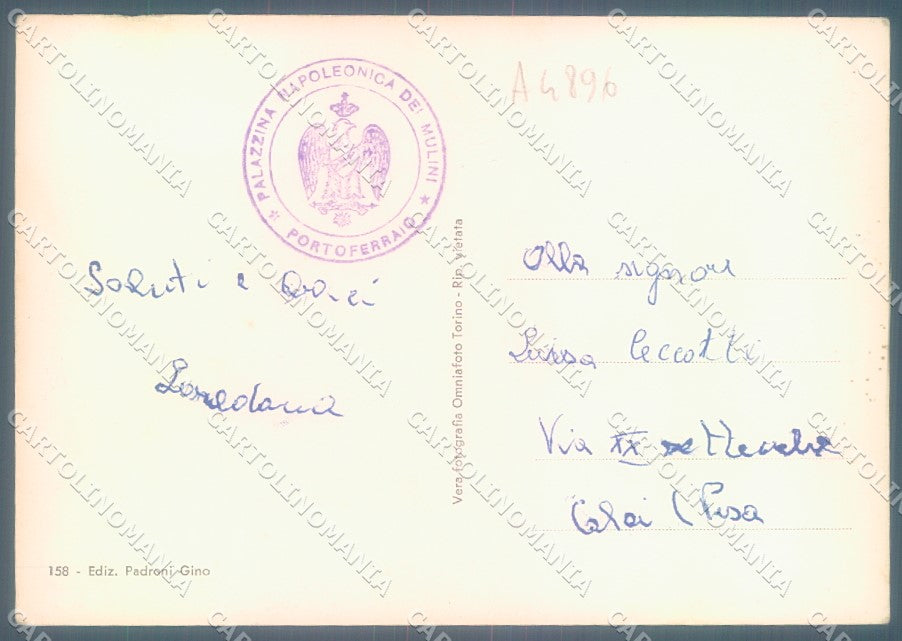 PALAZZINA NAPOLEONICA DEI MULINI
PORTOFERRAIO
A4896
Saluti e baci
Loredana
Alla signora
Luisa Ceccotti
Via XX settembre
Calci (Pisa
Vera fotografia Omniafoto Torino - Rip. vietata
158 - Ediz. Padroni Gino
CARTOLINOMANIA